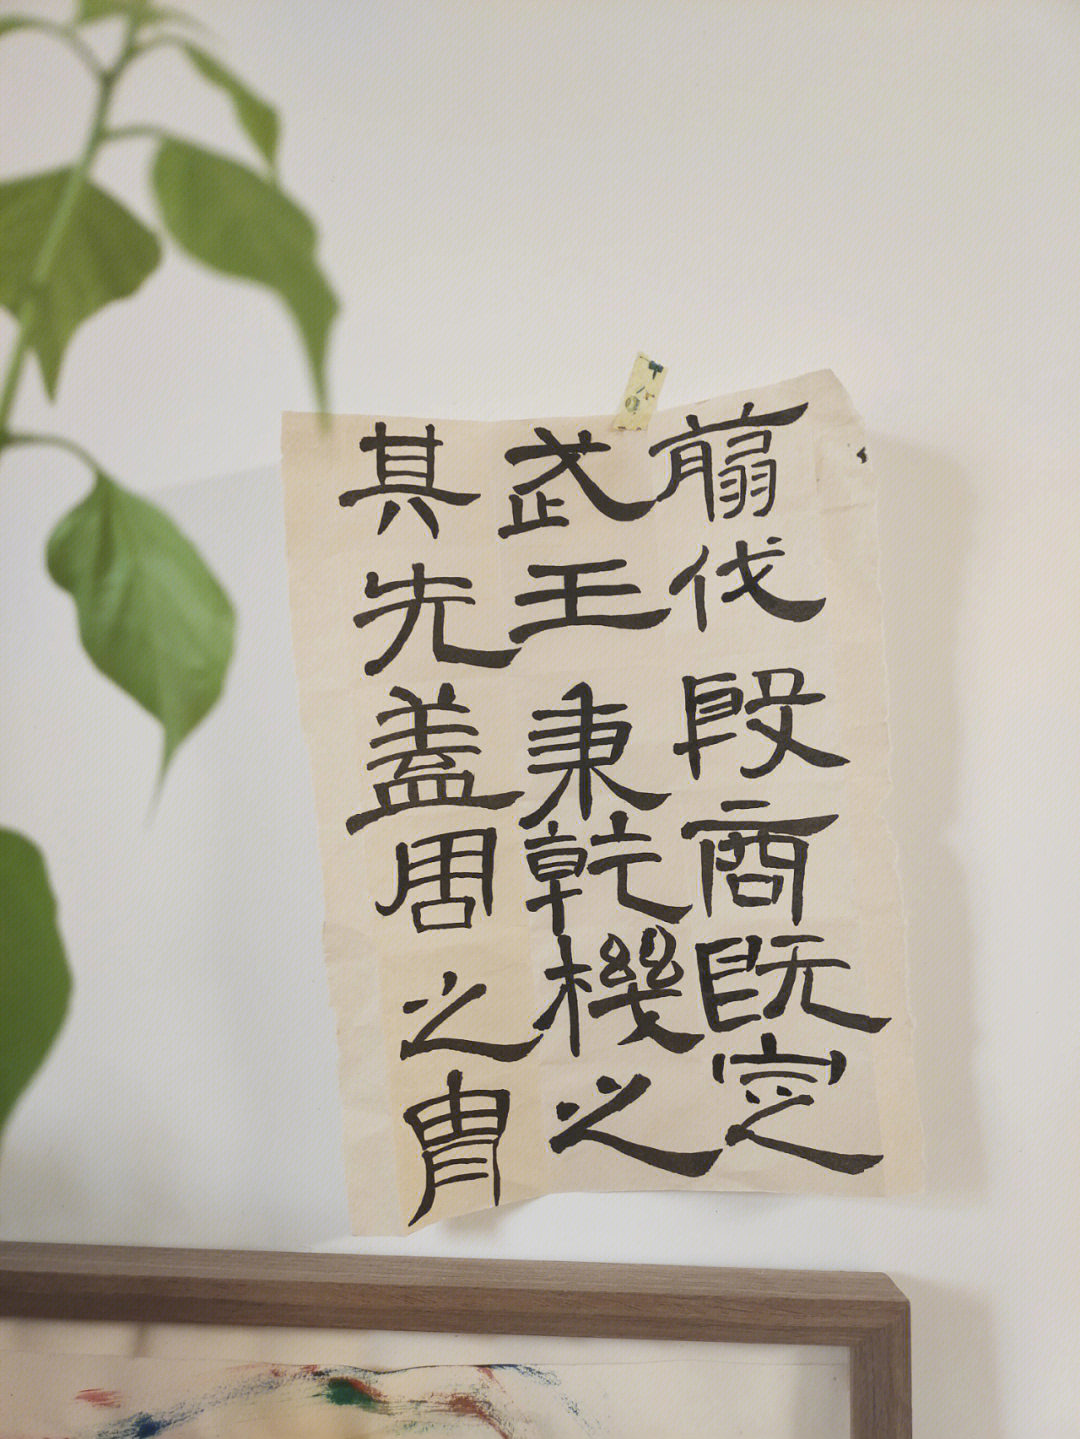 其先盖周之胄
武王秉乾機之
翦伐殷商既定